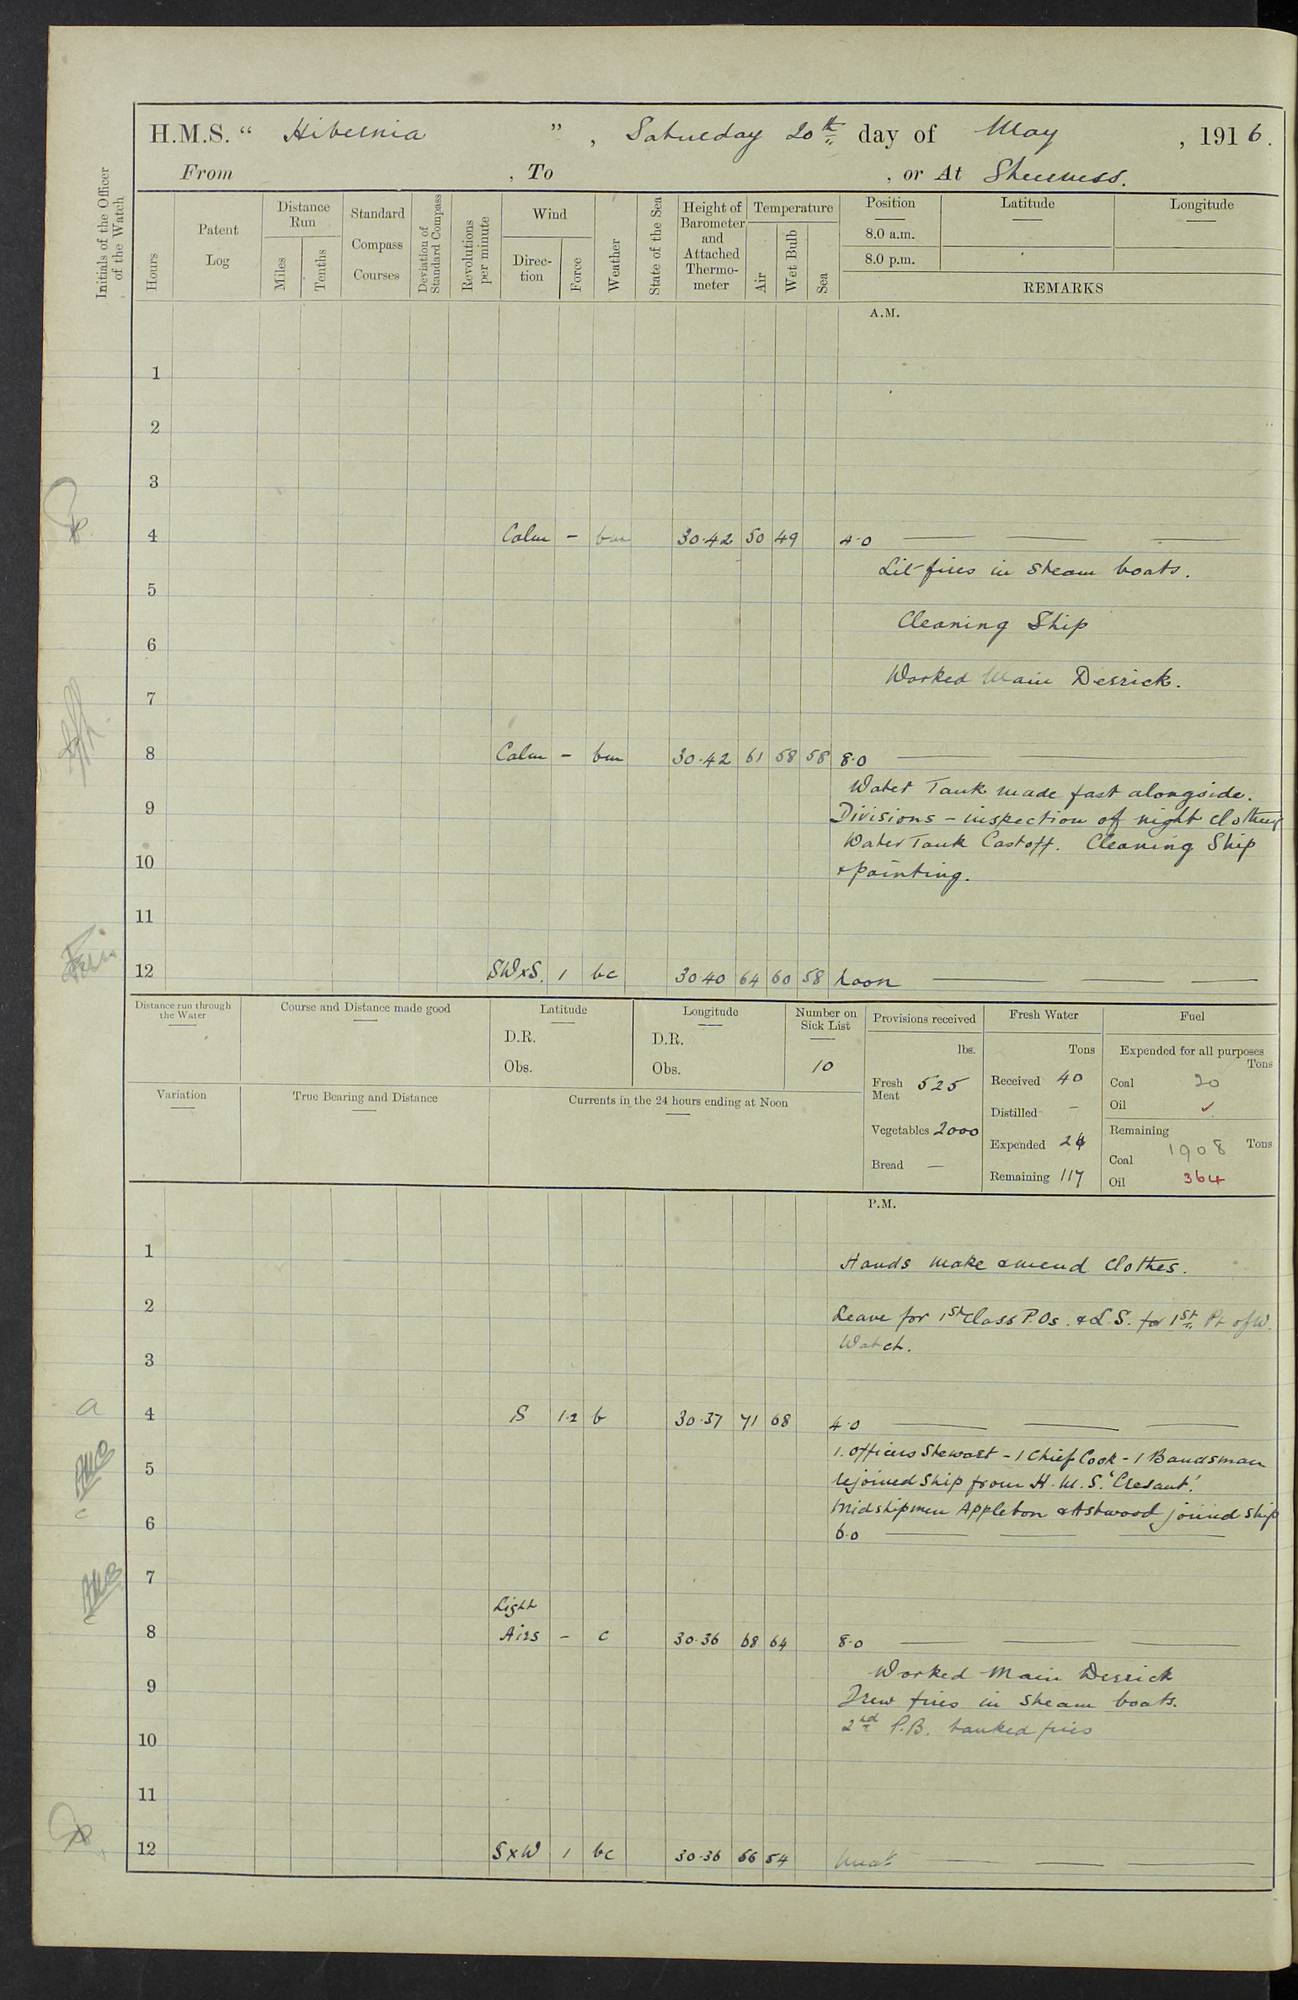 H.M.S. “ Hibernia ” , Saturday 20th day of May , 1916.
From , To , or At Sheerness.
Initials of the Officer of the Watch
Hours
Patent Log
Distance Run
Miles
Tenths
Standard Compass Courses
Deviation of Standard Compass
Revolutions per minute
Wind
Direction
Force
Weather
State of the Sea
Height of Barometer and Attached Thermometer
Temperature
Air
Wet Bulb
Sea
Position Latitude Longitude
8.0 a.m.
8.0 p.m.
REMARKS
A.M.
1
2
3
4 Calm – bm 30.42 50 49 4.0
Lit fires in steam boats.
5
Cleaning Ship
6
Worked Main Derrick.
7
8 Calm – bm 30.42 61 58 58 8.0
Water Tank made fast alongside.
9 Divisions – inspection of night clothing
Water Tank Cast off. Cleaning Ship
10 & painting.
11
12 SWxS. 1 bc 30 40 64 60 58 Noon
Distance run through the Water
Course and Distance made good
Latitude
D.R.
Obs.
Longitude
D.R.
Obs.
Number on Sick List
10
Provisions received
lbs.
Fresh Meat 525
Vegetables 2000
Bread –
Fresh Water
Tons
Received 40
Distilled –
Expended 24
Remaining 117
Fuel
Expended for all purposes
Tons
Coal 20
Oil ✓
Remaining
Tons
Coal 1908
Oil 364
Variation
True Bearing and Distance
Currents in the 24 hours ending at Noon
P.M.
1 Hands make & mend clothes.
2 Leave for 1st Class P.Os. & L.S. for 1st Pt of W.
Watch.
3
4 S 1.2 b 30.37 71 68 4.0
1. Officers Stewart – 1 Chief Cook – 1 Bandsman
5 rejoined ship from H.M.S. 'Cresant'.
Midshipmen Appleton & Astwood joined ship
6 6.0
7
Light
8 Airs – c 30.36 68 64 8.0
Worked Main Derrick
9 Drew fires in steam boats.
2nd P.B. banked fires
10
11
12 SxW 1 bc 30.36 56 54